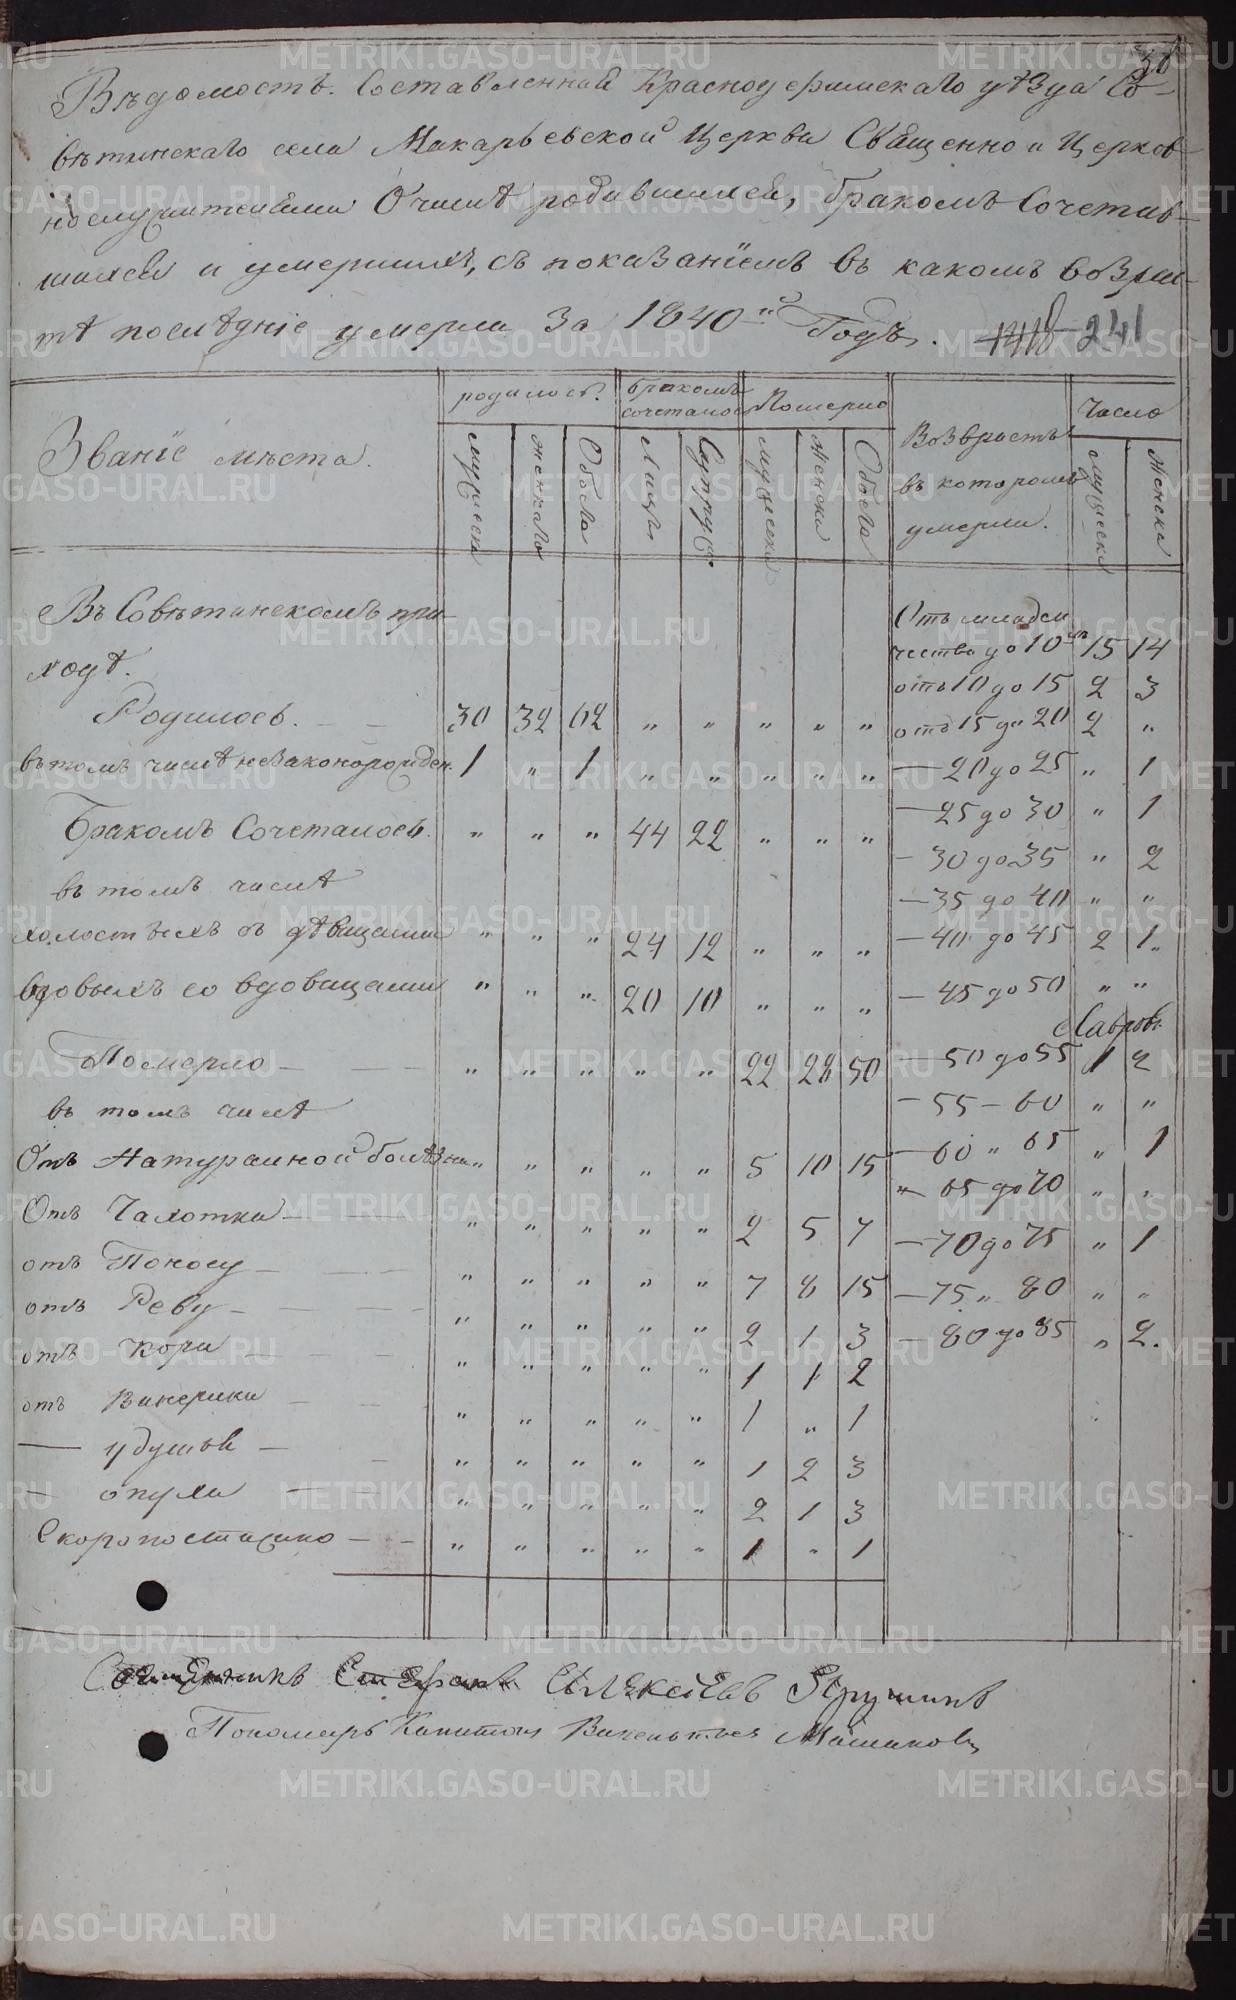 30
Вѣдомость. Составленная Красноуфимскаго уѣзда Со-
вѣтинскаго села Макарьевской Церкви Священно и Церков-
нослужителями О числѣ родившихся, бракомъ Сочетав-
шихся и умершихъ, съ показанïемъ въ какомъ возрас-
тѣ послѣднïе умерли За 1840-й Годъ. 241
Званïе мѣста.
родилось.
бракомъ сочеталось
Померло
Возврастъ въ которомъ умерли.
Число
мужеска женскаго Обоего Лицъ Супруж. мужеска женска Обоего мужеска Женска
Въ Совѣтинскомъ при-
ходѣ.
Родилось. 30 32 62 " " " " "
въ томъ числѣ незаконорожден. 1 " 1 " " " " "
Бракомъ Сочеталось. " " " 44 22 " " "
въ томъ числѣ
холостыхъ съ дѣвицами " " " 24 12 " " "
вдовыхъ со вдовицами " " " 20 10 " " "
Померло " " " " " 22 28 50
въ томъ числѣ
Отъ Натуральной болѣзни " " " " " 5 10 15
Отъ Чахотки " " " " " 2 5 7
отъ Поносу " " " " " 7 8 15
отъ Реву " " " " " 2 1 3
отъ Кори " " " " " 1 1 2
отъ Винерики " " " " " 1 " 1
— удушья " " " " " 1 2 3
— опухли " " " " " 2 1 3
Скоропостижно " " " " " 1 " 1
Отъ младен
чества до 10ти 15 14
отъ 10 до 15 2 3
отъ 15 до 20 2 "
— 20 до 25 " 1
— 25 до 30 " 1
— 30 до 35 " 2
— 35 до 40 " "
— 40 до 45 2 1
— 45 до 50 " "
— 50 до 55 1 2
— 55 — 60 " "
— 60 " 65 " 1
— 65 до 70 " "
— 70 до 75 " 1
— 75 " 80 " "
— 80 до 85 " 2.
Священникъ Стефанъ Алексѣевъ
Пономарь Капитонъ Викентьевъ
METRIKI.GASO-URAL.RU